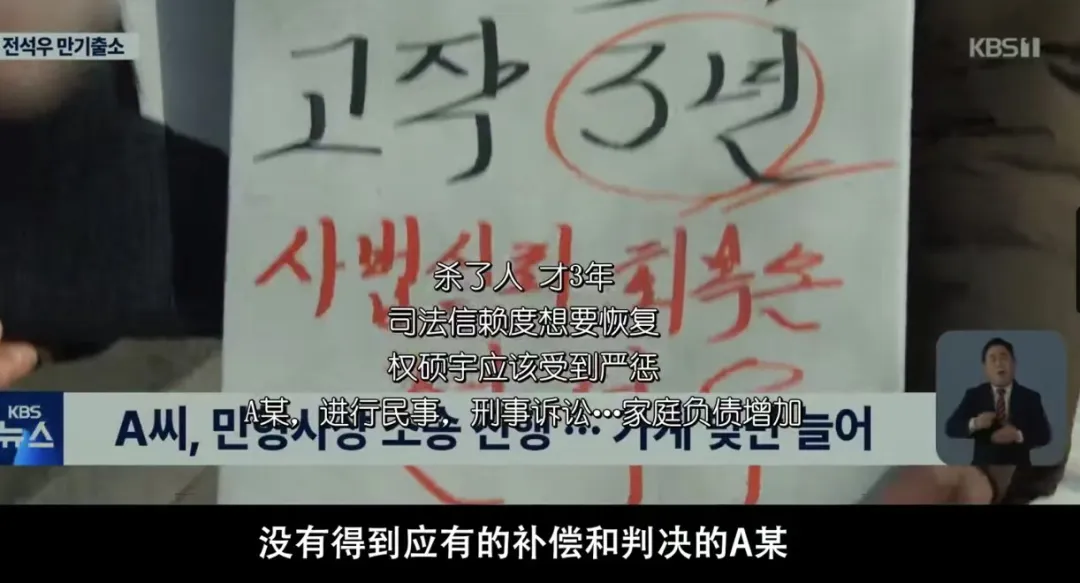 전석우 만기출소
KBS 1
고작 3년
사법신뢰 회복은
杀了人 才3年
司法信赖度想要恢复
权硕宇应该受到严惩
A某，进行民事，刑事诉讼…家庭负债增加
KBS
뉴스
A씨, 민형사상 소송 진행… 가계 빚만 늘어
没有得到应有的补偿和判决的A某